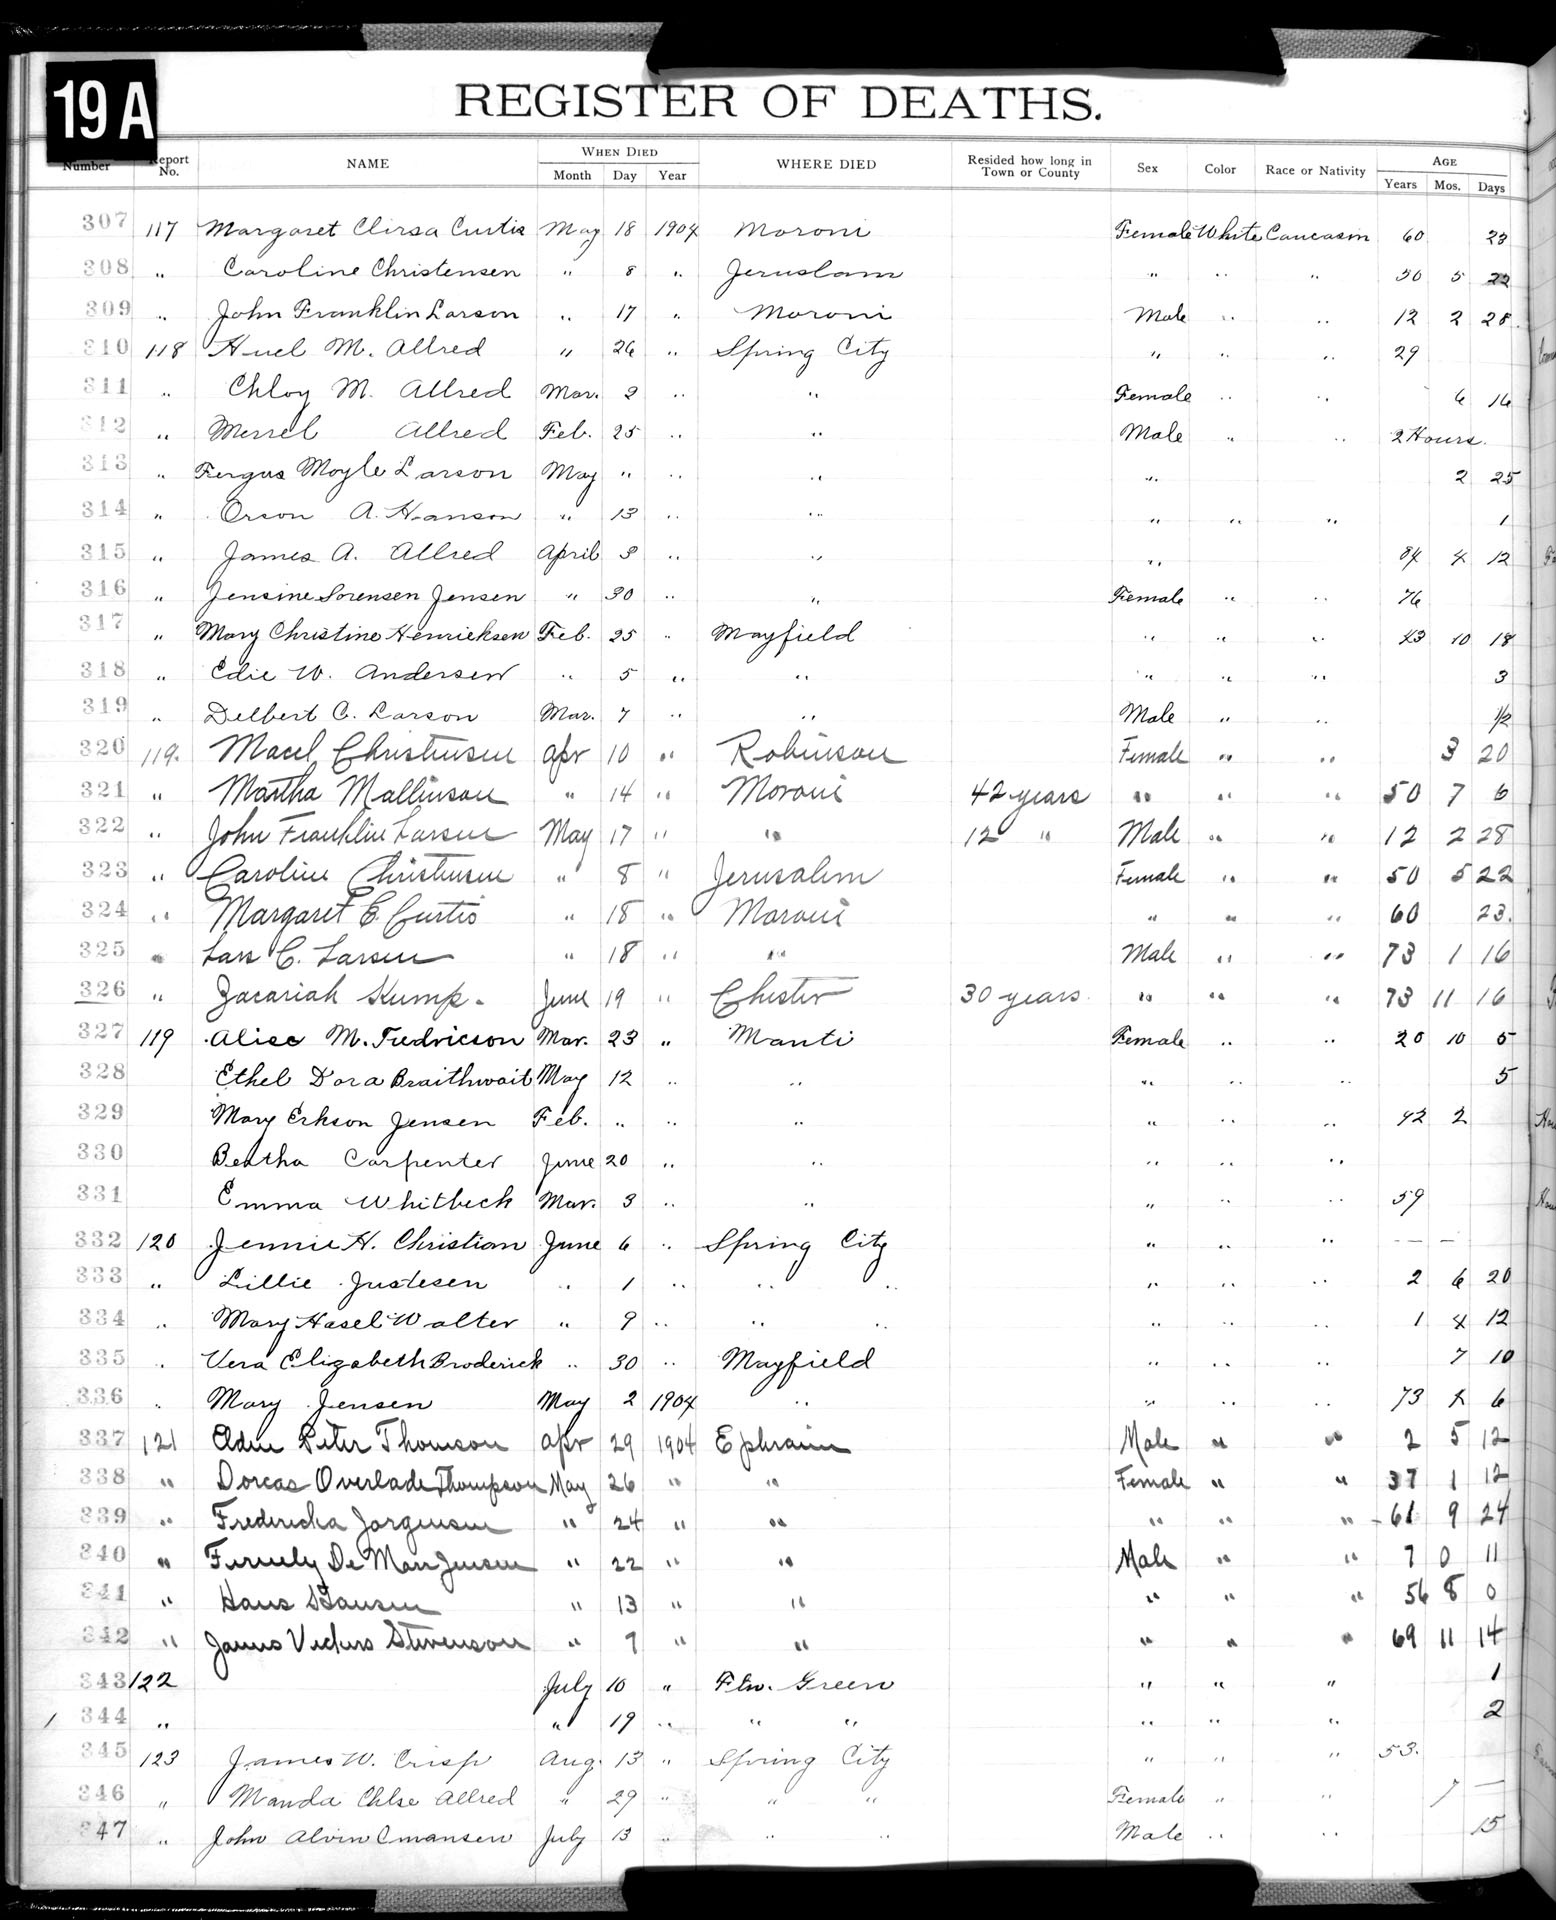 19 A
REGISTER OF DEATHS.
Number Report No. NAME WHEN DIED Month Day Year WHERE DIED Resided how long in Town or County Sex Color Race or Nativity AGE Years Mos. Days
307 117 Margaret Clirsa Curtis May 18 1904 Moroni Female White Caucasin 60 23
308 " Caroline Christensen " 8 " Jeruslam " " " 50 5 22
309 " John Franklin Larson " 17 " Moroni Male " " 12 2 28
310 118 Huel M. Allred " 26 " Spring City " " " 29
311 " Chloy M. Allred Mar. 2 " " Female " " 6 16
312 " Merrel Allred Feb. 25 " " Male " " 2 Hours.
313 " Fergus Moyle Larson May " " " " 2 25
314 " Orson A. Hanson " 13 " " " " " 1
315 " James A. Allred April 3 " " " 84 4 12
316 " Jensine Sorensen Jensen " 30 " " Female " " 76
317 " Mary Christine Henrieksen Feb. 25 " Mayfield " " " 43 10 18
318 " Edie W. Andersen " 5 " " " " " 3
319 " Delbert C. Larson Mar. 7 " " Male " " 1/2
320 119. Macel Christensen Apr 10 " Robinson Female " " 3 20
321 " Martha Mallinson " 14 " Moroni 42 years " " " 50 7 6
322 " John Franklin Larsen May 17 " " 12 " Male " " 12 2 28
323 " Caroline Christensen " 8 " Jerusalem Female " " 50 5 22
324 " Margaret C Curtis " 18 " Moroni " " " 60 23.
325 " Lars C. Larsen " 18 " " Male " " 73 1 16
326 " Zacariah Kump. June 19 " Chester 30 years. " " " 73 11 16
327 119 Alise M. Fredricson Mar. 23 " Manti Female " " 20 10 5
328 Ethel Dora Braithwait May 12 " " " " " 5
329 Mary Erkson Jensen Feb. " " " " " " 42 2
330 Beatha Carpenter June 20 " " " " "
331 Emma Whitbeck Mar. 3 " " " " " 59
332 120 Jennie H. Christian June 6 " Spring City " " " — —
333 " Lillie Justesen " 1 " " " " " " 2 6 20
334 " Mary Hasel Walter " 9 " " " " " " 1 4 12
335 " Vera Elizabeth Broderick " 30 " Mayfield " " " 7 10
336 " Mary Jensen May 2 1904 " " " " 73 6
337 121 Peter Thomson Apr 29 1904 Ephraim Male " " 2 5 12
338 " Dorcas Overlade Thompson May 26 " " Female " " 37 1 12
339 " Fredericka Jorgensen " 24 " " " " " 61 9 24
340 " De Marr Jensen " 22 " " Male " " 7 0 11
341 " Hans Hansen " 13 " " " " " 56 8 0
342 " James Vickers Stevenson " 7 " " " " " 69 11 14
343 122 July 10 " Ftn. Green " " " 1
344 " " 19 " " " " " " 2
345 123 James W. Crisp Aug. 13 " Spring City " " " 53.
346 " Manda Chlse Allred " 29 " " " Female " " 7 —
347 " John Alvin Cmansen July 13 " " " Male " " 15